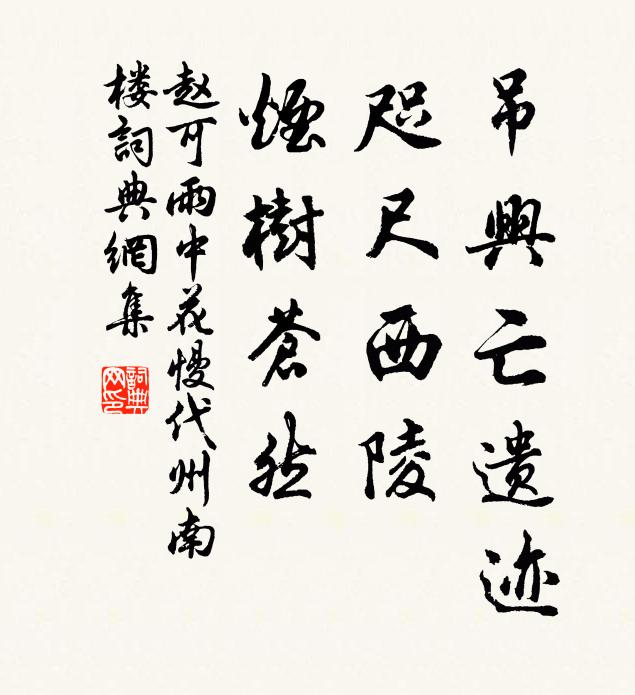 吊興亡遗迹
咫尺西陵
煙樹蒼然
赵可雨中花慢代州南
楼詞典網集
詞典网印